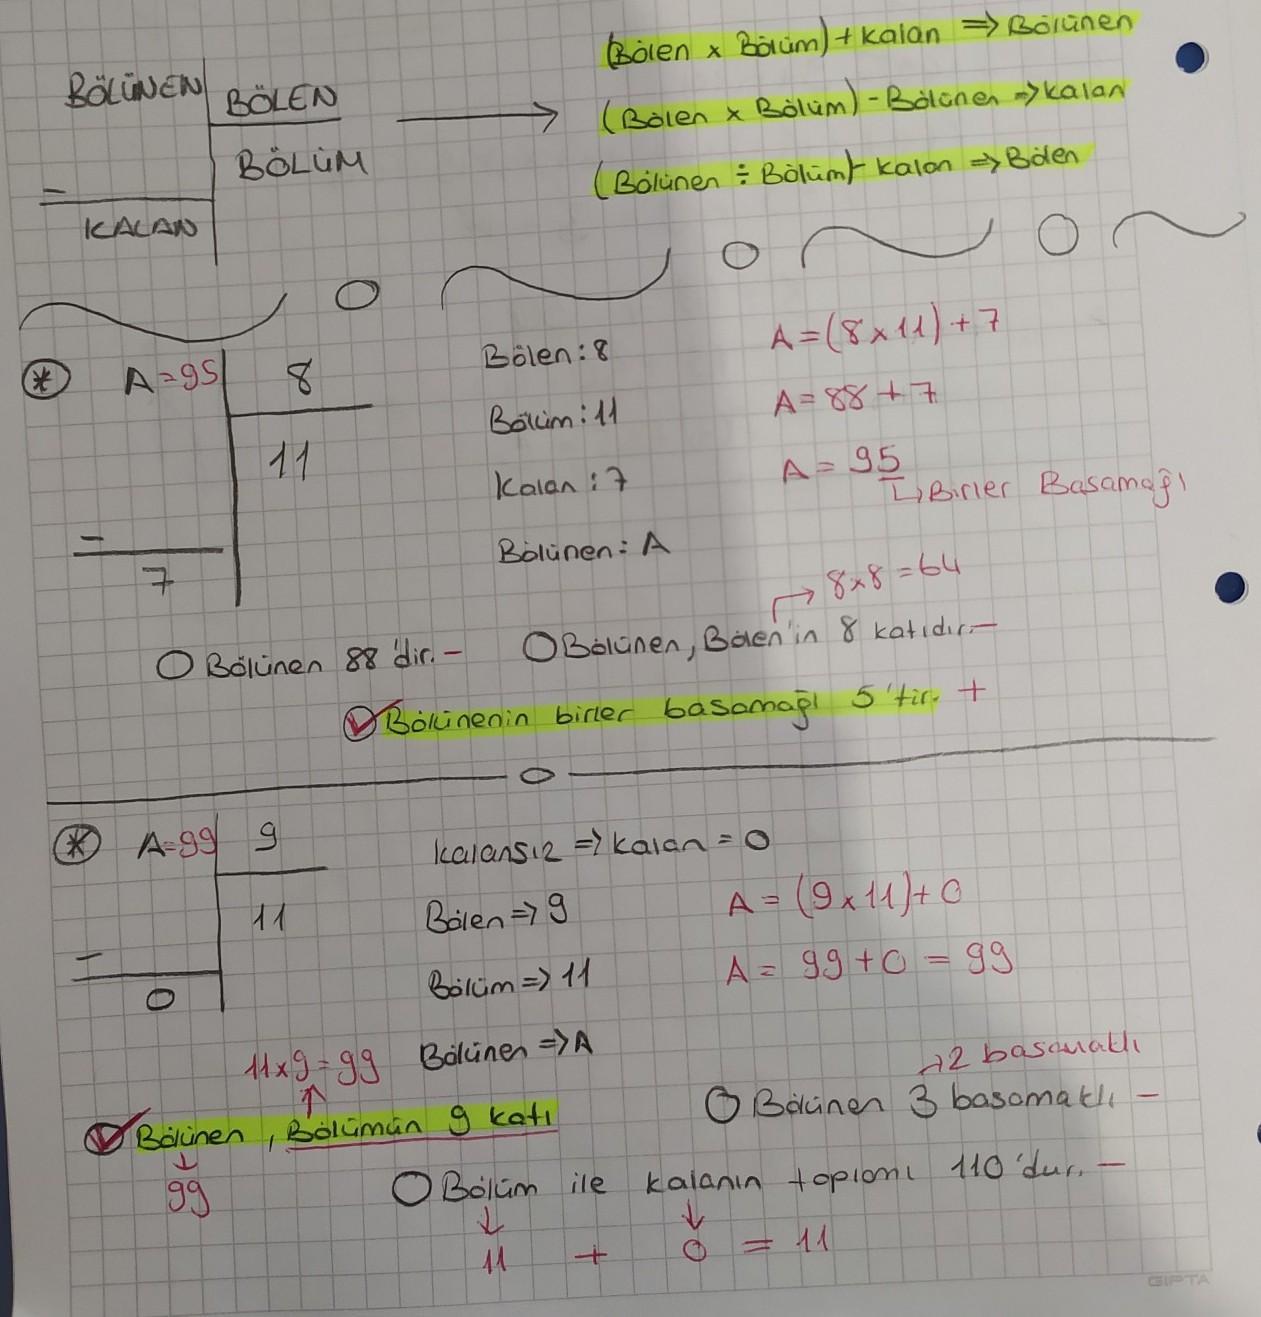 BÖLÜNEN
BÖLEN
BÖLÜM
-
KALAN
(Bölen x Bölüm) + Kalan => Bölünen
(Bölen x Bölüm) - Bölünen => Kalan
(Bölünen ÷ Bölüm) - Kalan => Bölen
* A=95
8
11
-
7
Bölen: 8
Bölüm: 11
Kalan: 7
Bölünen: A
A = (8x11) + 7
A = 88 + 7
A = 95
Birler Basamağı
→ 8x8=64
Bölünen 88'dir. -
Bölünen, Bölen'in 8 katıdır. -
Bölünenin birler basamağı 5'tir. +
* A=99
9
11
-
0
Kalansız => Kalan = 0
Bölen => 9
Bölüm => 11
Bölünen => A
A = (9x11) + 0
A = 99 + 0 = 99
11x9=99
Bölünen, Bölümün 9 katı
99
→ 2 basamaklı
Bölünen 3 basamaklı. -
Bölüm ile kalanın toplamı 110'dur. -
11 + 0 = 11
GIPTA